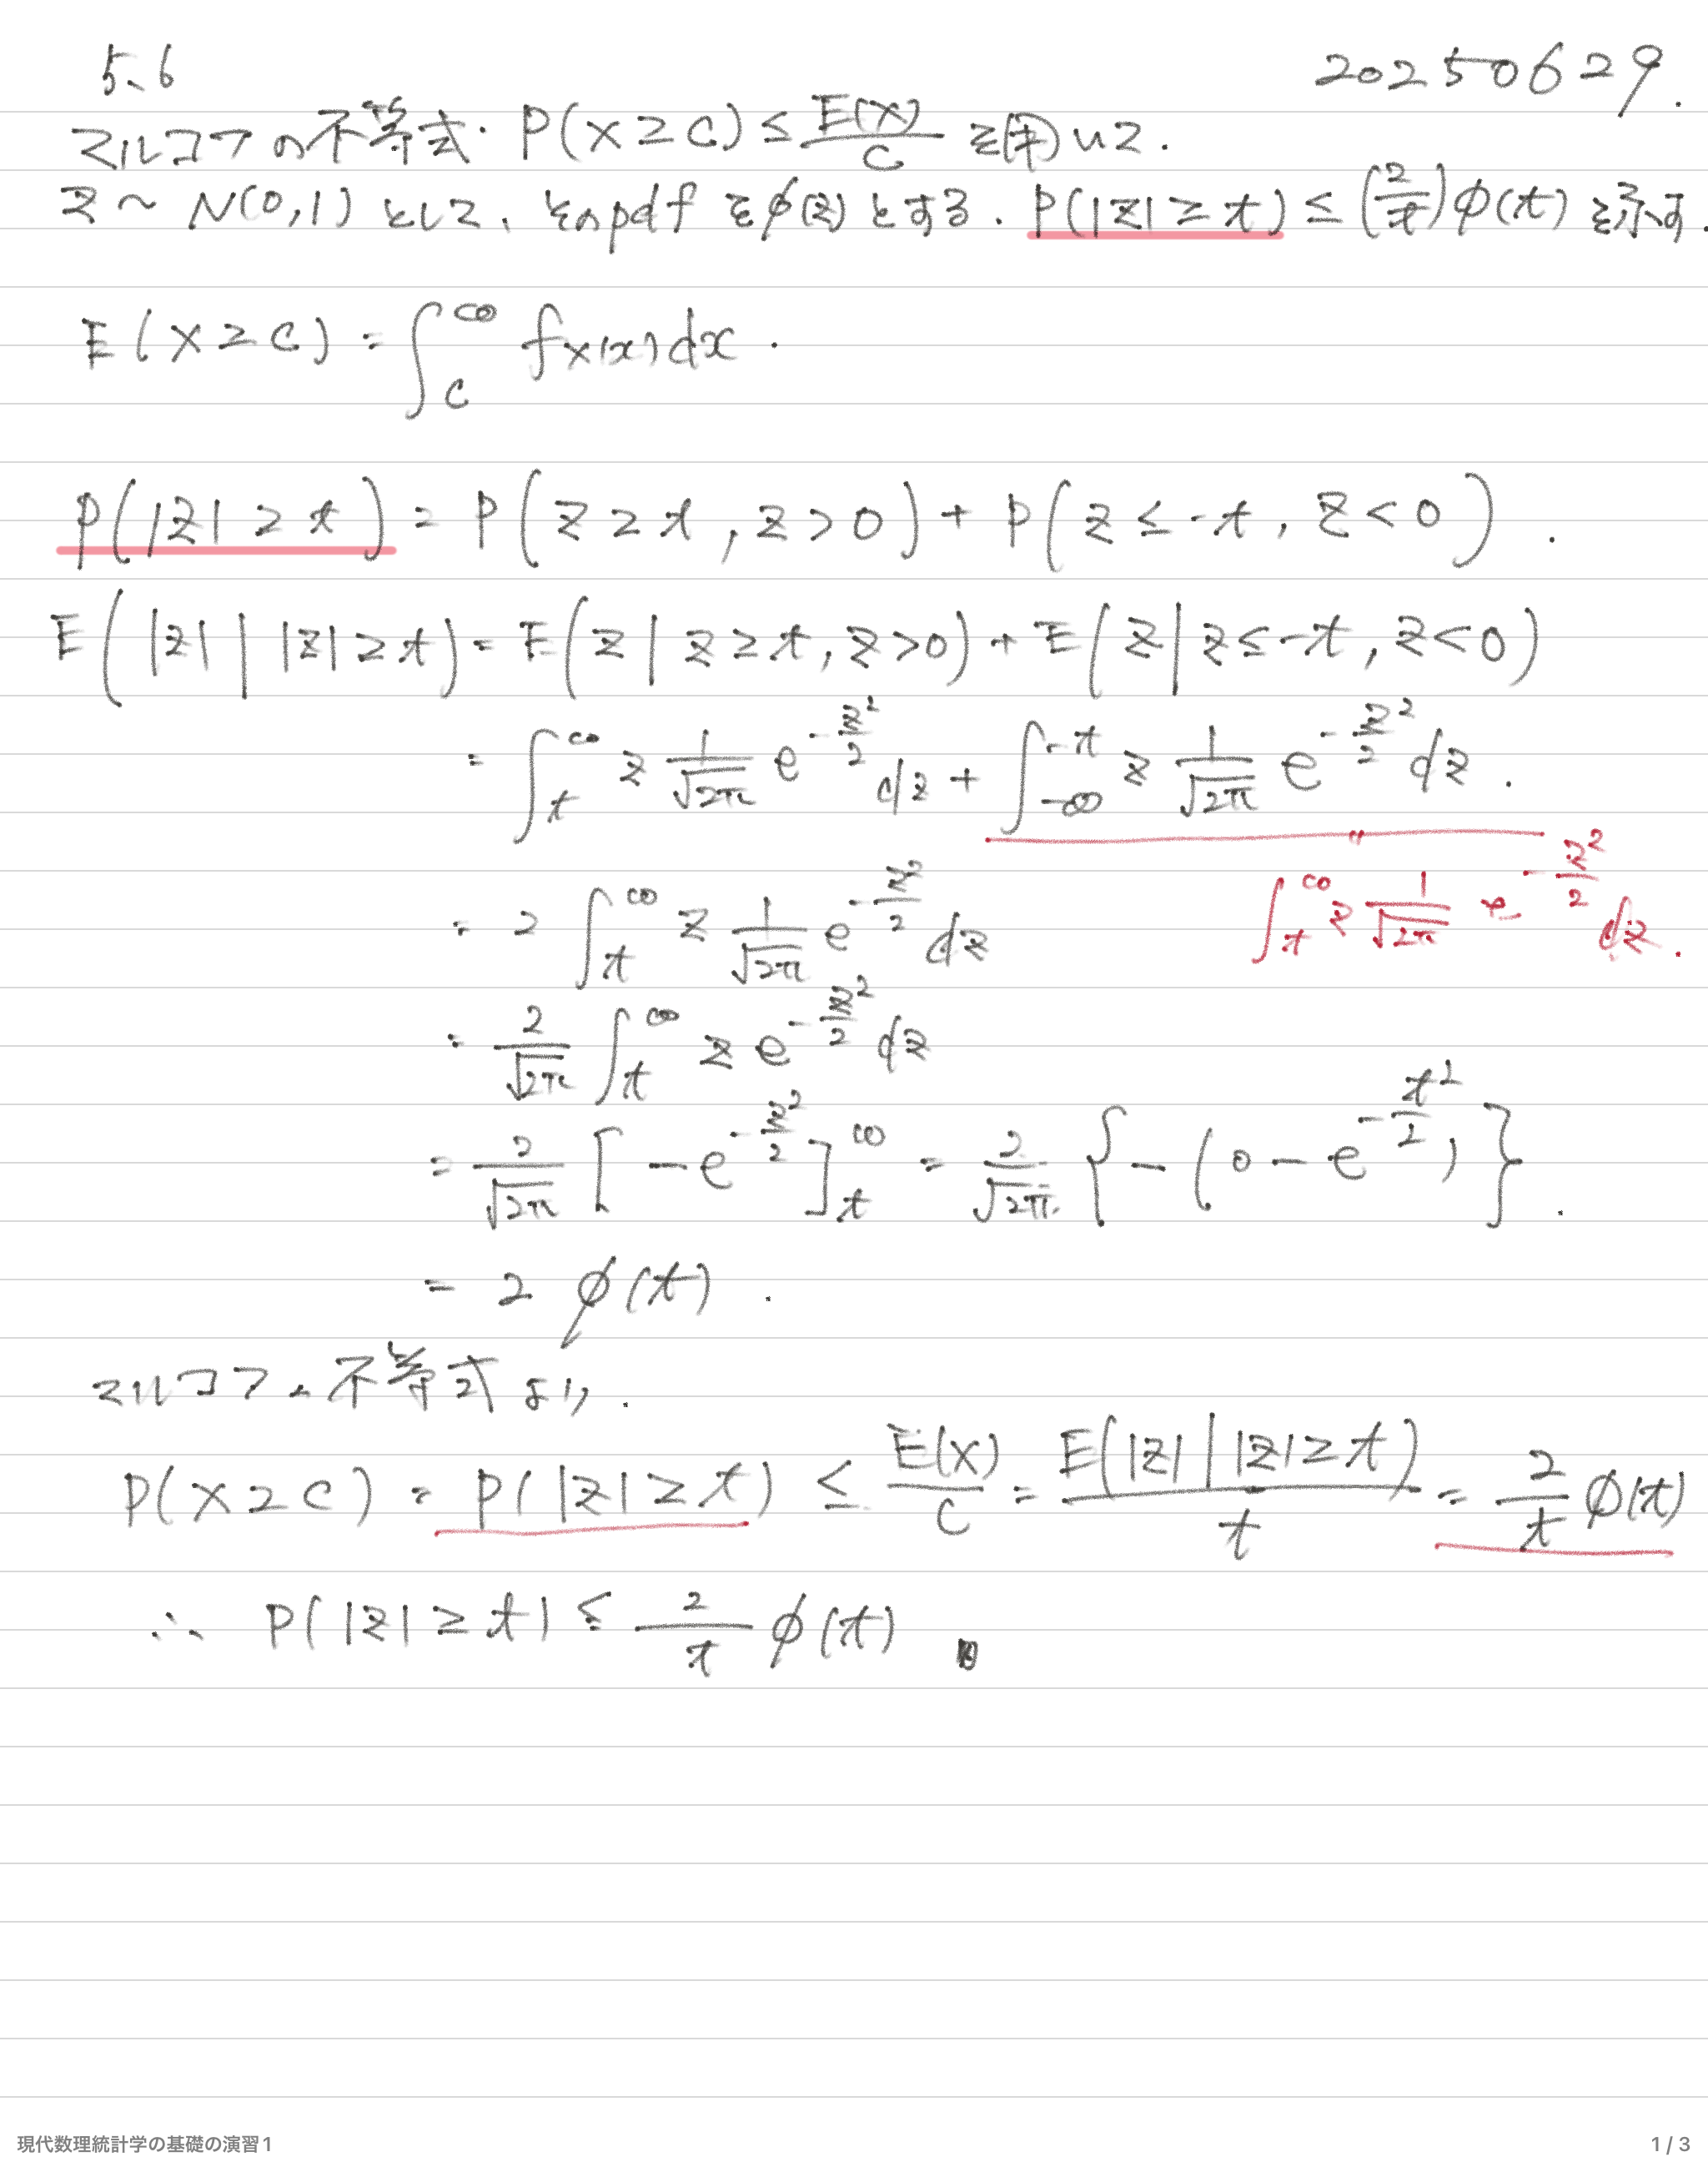 5.6 20250629.
マルコフの不等式. P(X≥C) ≤ E(X)/C を用いて.
Z ~ N(0,1) として、そのpdfをφ(z)とする. P(|Z|≥t) ≤ (2/t)φ(t) を示す.
E(X≥C) = ∫_C^∞ f_X(x)dx.
P(|Z|≥t) = P(Z≥t, Z>0) + P(Z≤-t, Z<0).
E(|Z| | |Z|≥t) = E(Z | Z≥t, Z>0) + E(Z | Z≤-t, Z<0)
= ∫_t^∞ z 1/√2π e^{-z²/2} dz + ∫_{-∞}^{-t} z 1/√2π e^{-z²/2} dz.
= 2 ∫_t^∞ z 1/√2π e^{-z²/2} dz
∫_t^∞ z 1/√2π e^{-z²/2} dz.
= 2/√2π ∫_t^∞ z e^{-z²/2} dz
= 2/√2π [-e^{-z²/2}]_t^∞ = 2/√2π {-(0 - e^{-t²/2})}.
= 2 φ(t).
マルコフの不等式より.
P(X≥C) = P(|Z|≥t) ≤ E(X)/C = E(|Z| | |Z|≥t)/t = 2/t φ(t)
∴ P(|Z|≥t) ≤ 2/t φ(t)
現代数理統計学の基礎の演習1 1 / 3